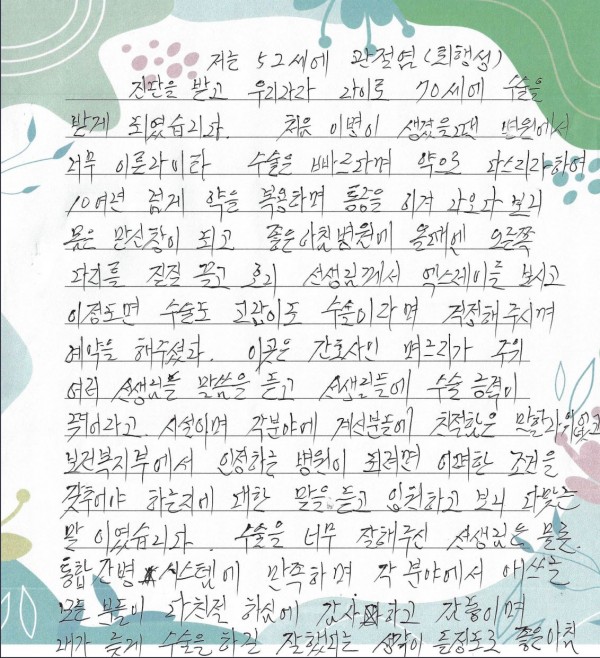 저는 52세에 관절염(퇴행성)
진단을 받고 우리나라 나이로 70세에 수술을
받게 되였습니다. 처음 이병이 생겼을때 병원에서
너무 이른나이라 수술은 빠르다며 약으로 다스리라하여
10여년 넘게 약을 복용하며 통증을 이겨 나오다 보니
몸은 만신창이 되고 좋은아침병원에 올때엔 오른쪽
다리를 질질 끌고 오니 선생님께서 엑스레이를 보시고
이정도면 수술도 고난이도 수술이라며 걱정해주시며
예약을 해주셨다. 이곳은 간호사인 며느리가 주위
여러 선생님들 말씀을 듣고 선생님들에 수술 금력이
뛰어나고. 시설이며 각분야에 계신분들에 친절함은 말할나위없고
보건복지부에서 인정하는 병원이 되려면 어떠한 조건을
갖추어야 하는지에 대한 말을 듣고 입원하고 보니 다맞는
말 이였습니다. 수술을 너무 잘해주신 선생님은 물론.
통합간병 시스템에 만족하며 각 분야에서 애쓰는
모든 분들이 다친절 하심에 감사하고 갓 이며
내가 늦게 수술을 하길 잘했다는 생각이 들정도로 좋은아침